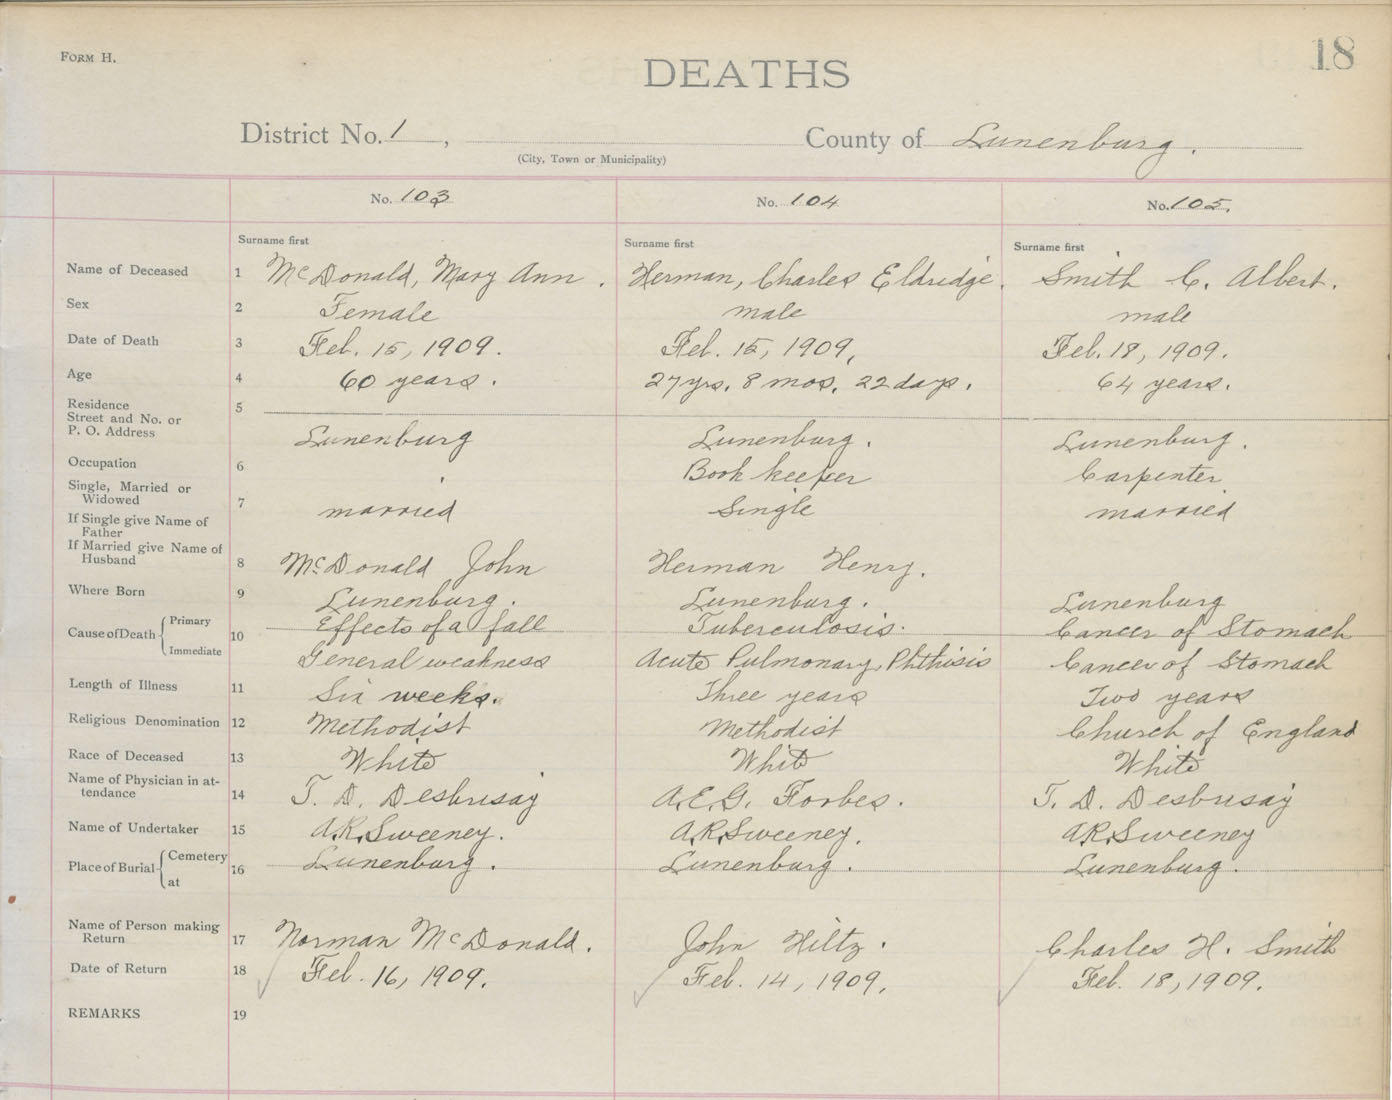 FORM H.
18
DEATHS
District No. 1, County of Lunenburg.
(City, Town or Municipality)
No. 103 No. 104 No. 105.
Surname first Surname first Surname first
Name of Deceased 1 McDonald, Mary Ann. Herman, Charles Eldridge. Smith C. Albert.
Sex 2 Female male male
Date of Death 3 Feb. 15, 1909. Feb. 15, 1909, Feb. 18, 1909.
Age 4 60 years. 27 yrs. 8 mos. 22 days. 64 years.
Residence 5
Street and No. or
P. O. Address Lunenburg Lunenburg. Lunenburg.
Occupation 6 Book keeper Carpenter
Single, Married or
Widowed 7 married Single married
If Single give Name of
Father
If Married give Name of
Husband 8 McDonald John Herman Henry.
Where Born 9 Lunenburg. Lunenburg. Lunenburg
Cause of Death 10 Primary Effects of a fall Tuberculosis. Cancer of Stomach
Immediate General weakness Acute Pulmonary Phthisis Cancer of Stomach
Length of Illness 11 Six weeks. Three years Two years
Religious Denomination 12 Methodist Methodist Church of England
Race of Deceased 13 White White White
Name of Physician in at-
tendance 14 T. D. Desbrisay A.E.G. Forbes. T. D. Desbrisay
Name of Undertaker 15 A.R. Sweeney. A.R. Sweeney. A.R. Sweeney
Place of Burial 16 Cemetery Lunenburg. Lunenburg. Lunenburg.
at
Name of Person making
Return 17 Norman McDonald. John Hiltz. Charles H. Smith
Date of Return 18 Feb. 16, 1909. Feb. 14, 1909. Feb. 18, 1909.
REMARKS 19